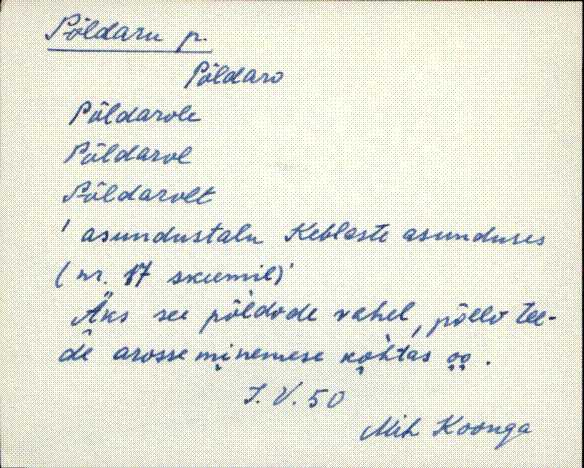 Põldaru p.
Põldaro
Põldarole
Põldarol
Põldarolt
' asundustalu Keblaste asunduses
(nr. 17 skeemil)'
Äks see põldode vahel, põllo tee-
de arosse minemese kohtas oo.
I. V. 50
Mih Koonga